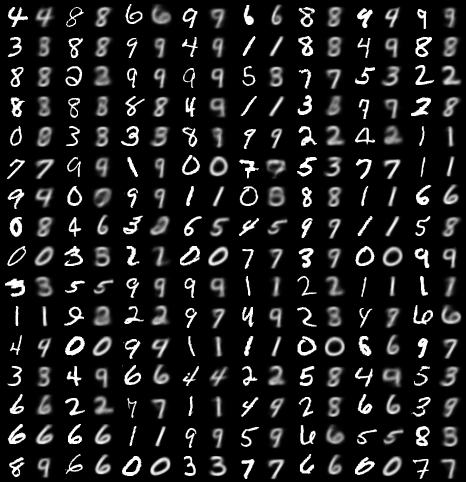 4 4 8 8 6 6 9 9 6 6 8 8 9 9 9 9
3 3 8 8 9 9 4 9 1 1 8 8 4 9 8 8
8 8 2 2 9 9 9 9 5 3 7 7 5 3 2 2
8 8 8 8 8 8 4 9 1 1 3 8 7 7 2 8
0 8 3 3 3 3 8 9 9 9 2 2 4 2 1 1
7 7 9 9 1 9 0 0 7 7 5 3 7 7 1 1
9 4 0 0 9 9 1 1 0 8 8 8 1 1 6 6
0 8 4 6 3 2 6 5 4 5 9 9 1 1 5 8
0 0 3 3 2 2 0 0 7 7 3 9 0 0 9 9
3 3 5 5 9 9 9 9 1 1 2 2 1 1 1 1
1 1 9 2 2 2 9 7 4 9 2 3 4 7 6 6
4 9 0 0 9 9 1 1 1 1 0 0 6 6 9 7
3 3 4 9 6 6 4 4 2 2 5 8 4 9 5 3
6 6 2 2 7 7 1 1 4 9 2 8 6 6 3 9
6 6 6 6 1 1 9 9 5 9 6 6 5 5 8 3
8 9 6 6 0 0 3 3 7 7 6 6 0 0 7 7